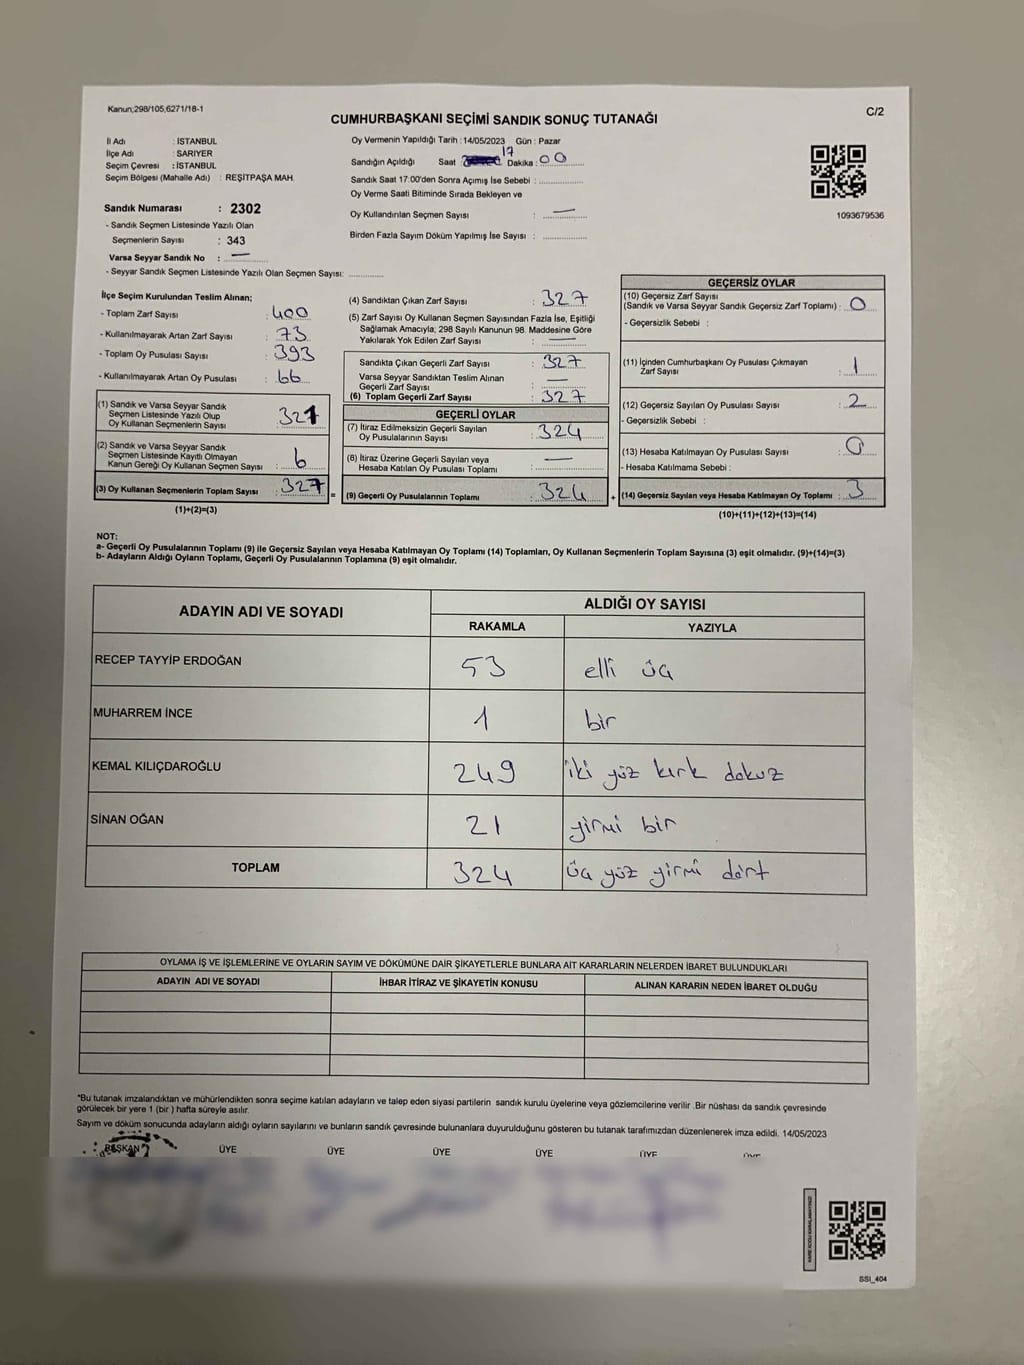 Kanun;298/105,6271/18-1
C/2
CUMHURBAŞKANI SEÇİMİ SANDIK SONUÇ TUTANAĞI
İl Adı : İSTANBUL
İlçe Adı : SARIYER
Seçim Çevresi : İSTANBUL
Seçim Bölgesi (Mahalle Adı) : REŞİTPAŞA MAH.
Sandık Numarası : 2302
- Sandık Seçmen Listesinde Yazılı Olan
Seçmenlerin Sayısı : 343
Varsa Seyyar Sandık No : —
- Seyyar Sandık Seçmen Listesinde Yazılı Olan Seçmen Sayısı: ............
Oy Vermenin Yapıldığı Tarih : 14/05/2023 Gün : Pazar
Sandığın Açıldığı Saat 17 Dakika : 00
Sandık Saat 17:00'den Sonra Açımış İse Sebebi : ............
Oy Verme Saati Bitiminde Sırada Bekleyen ve
Oy Kullandırılan Seçmen Sayısı : —
Birden Fazla Sayım Döküm Yapılmış İse Sayısı : ............
1093679536
İlçe Seçim Kurulundan Teslim Alınan;
- Toplam Zarf Sayısı : 400
- Kullanılmayarak Artan Zarf Sayısı : 73
- Toplam Oy Pusulası Sayısı : 393
- Kullanılmayarak Artan Oy Pusulası : 66
(1) Sandık ve Varsa Seyyar Sandık
Seçmen Listesinde Yazılı Olup
Oy Kullanan Seçmenlerin Sayısı : 321
(2) Sandık ve Varsa Seyyar Sandık
Seçmen Listesinde Kayıtlı Olmayan
Kanun Gereği Oy Kullanan Seçmen Sayısı : 6
(3) Oy Kullanan Seçmenlerin Toplam Sayısı : 327
(1)+(2)=(3)
(4) Sandıktan Çıkan Zarf Sayısı : 327
(5) Zarf Sayısı Oy Kullanan Seçmen Sayısından Fazla İse, Eşitliği
Sağlamak Amacıyla; 298 Sayılı Kanunun 98. Maddesine Göre
Yakılarak Yok Edilen Zarf Sayısı : —
Sandıkta Çıkan Geçerli Zarf Sayısı : 327
Varsa Seyyar Sandıktan Teslim Alınan
Geçerli Zarf Sayısı : —
(6) Toplam Geçerli Zarf Sayısı : 327
GEÇERLİ OYLAR
(7) İtiraz Edilmeksizin Geçerli Sayılan
Oy Pusulalarının Sayısı : 324
(8) İtiraz Üzerine Geçerli Sayılan veya
Hesaba Katılan Oy Pusulası Toplamı : —
(9) Geçerli Oy Pusulalarının Toplamı : 324
GEÇERSİZ OYLAR
(10) Geçersiz Zarf Sayısı
(Sandık ve Varsa Seyyar Sandık Geçersiz Zarf Toplamı) : 0
- Geçersizlik Sebebi :
(11) İçinden Cumhurbaşkanı Oy Pusulası Çıkmayan
Zarf Sayısı : 1
(12) Geçersiz Sayılan Oy Pusulası Sayısı : 2
- Geçersizlik Sebebi :
(13) Hesaba Katılmayan Oy Pusulası Sayısı : 0
- Hesaba Katılmama Sebebi :
(14) Geçersiz Sayılan veya Hesaba Katılmayan Oy Toplamı : 3
(10)+(11)+(12)+(13)=(14)
NOT:
a- Geçerli Oy Pusulalarının Toplamı (9) ile Geçersiz Sayılan veya Hesaba Katılmayan Oy Toplamı (14) Toplamları, Oy Kullanan Seçmenlerin Toplam Sayısına (3) eşit olmalıdır. (9)+(14)=(3)
b- Adayların Aldığı Oyların Toplamı, Geçerli Oy Pusulalarının Toplamına (9) eşit olmalıdır.
ADAYIN ADI VE SOYADI
ALDIĞI OY SAYISI
RAKAMLA YAZIYLA
RECEP TAYYİP ERDOĞAN 53 elli üç
MUHARREM İNCE 1 bir
KEMAL KILIÇDAROĞLU 249 iki yüz kırk dokuz
SİNAN OĞAN 21 yirmi bir
TOPLAM 324 üç yüz yirmi dört
OYLAMA İŞ VE İŞLEMLERİNE VE OYLARIN SAYIM VE DÖKÜMÜNE DAİR ŞİKAYETLERLE BUNLARA AİT KARARLARIN NELERDEN İBARET BULUNDUKLARI
ADAYIN ADI VE SOYADI İHBAR İTİRAZ VE ŞİKAYETİN KONUSU ALINAN KARARIN NEDEN İBARET OLDUĞU
*Bu tutanak imzalandıktan ve mühürlendikten sonra seçime katılan adayların ve talep eden siyasi partilerin sandık kurulu üyelerine veya gözlemcilerine verilir .Bir nüshası da sandık çevresinde
görülecek bir yere 1 (bir ) hafta süreyle asılır.
Sayım ve döküm sonucunda adayların aldığı oyların sayılarını ve bunların sandık çevresinde bulunanlara duyurulduğunu gösteren bu tutanak tarafımızdan düzenlenerek imza edildi. 14/05/2023
BAŞKAN ÜYE ÜYE ÜYE ÜYE ÜYE
SSI_404